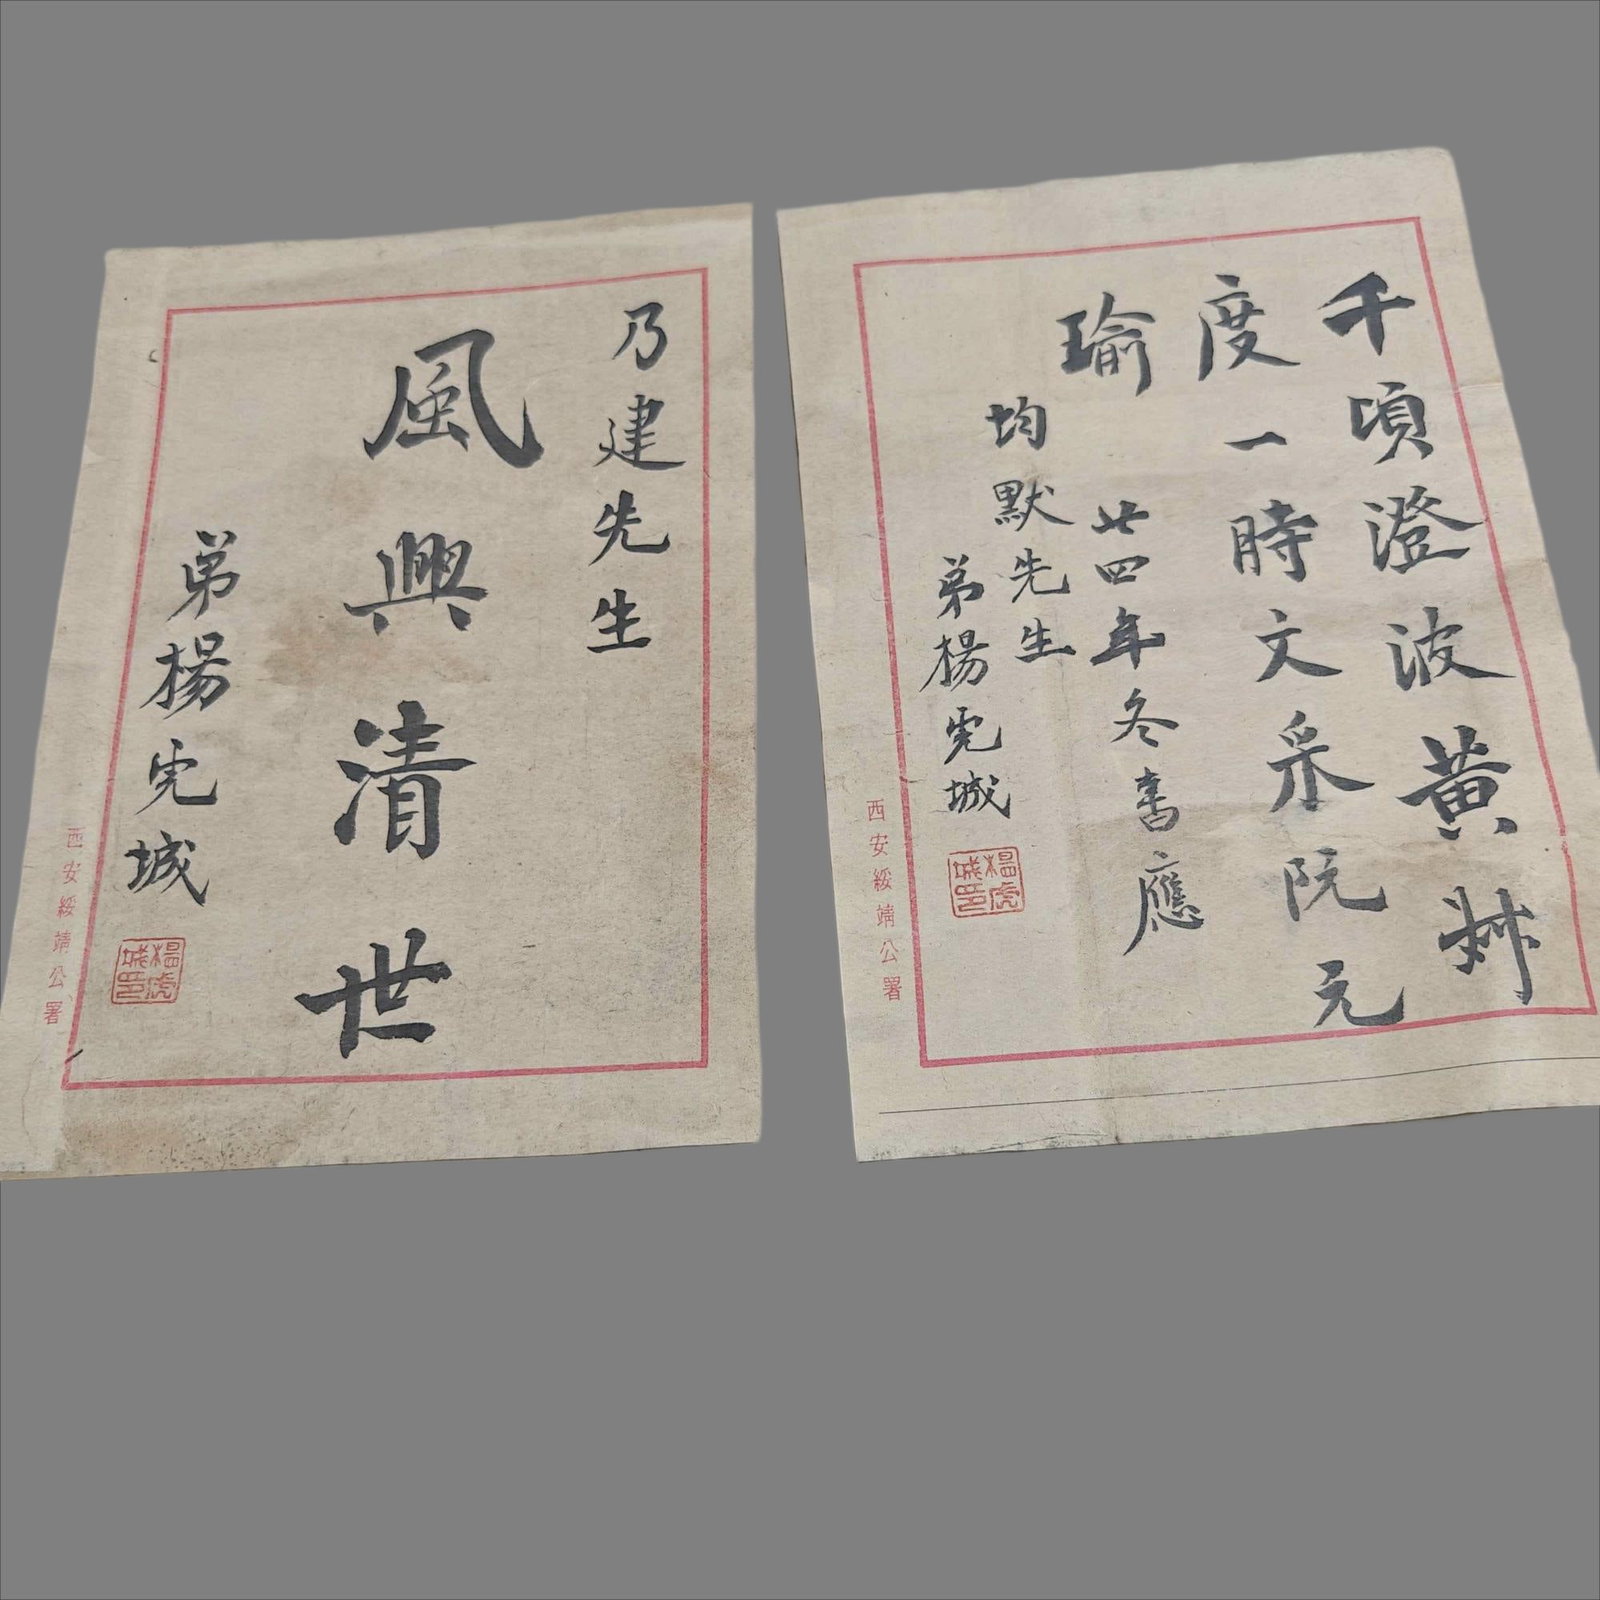 千頃澄波黃叔
度一時文采阮元
瑜 廿四年冬書應
均默先生
弟楊虎城
楊虎城印
西安綏靖公署
乃建先生
風興清世
弟楊虎城
楊虎城印
西安綏靖公署